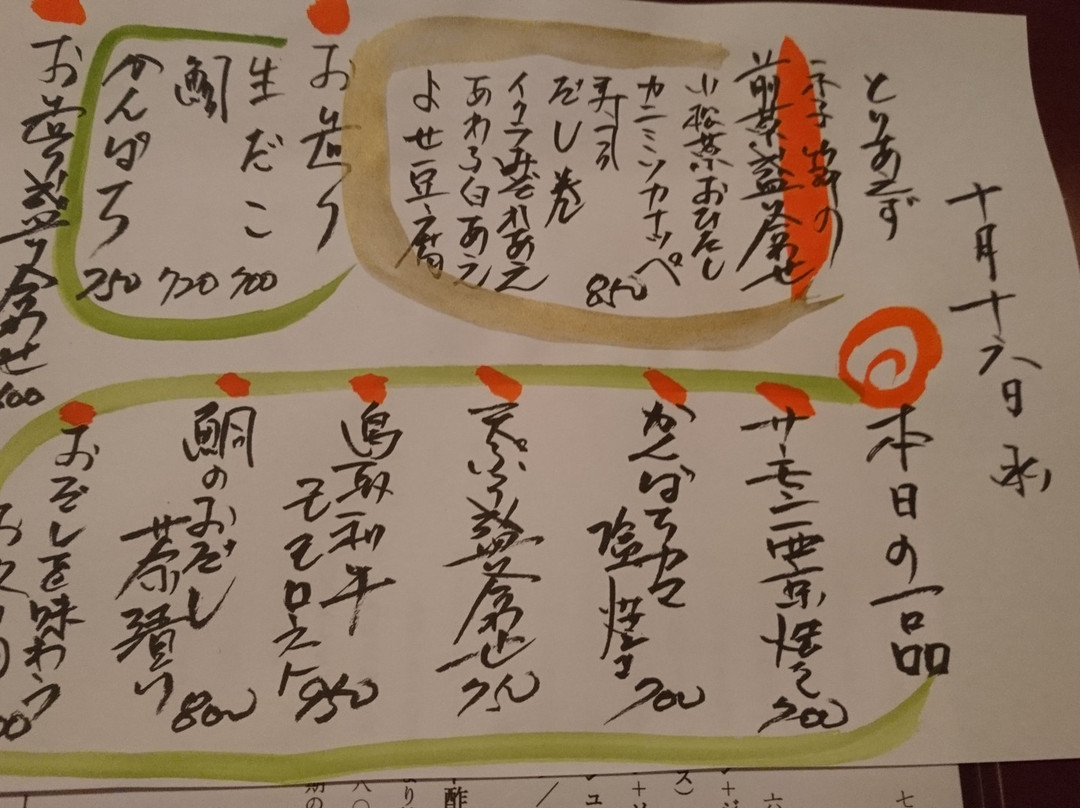 十月十六日 水
とりあえず
前菜盛り合わせ
小松菜おひたし
カニミソカナッペ
850
寿司
だし巻
イクラみぞれあえ
あわふ白あえ
よせ豆腐
お造り
生だこ 700
鯛 720
かんぱち 750
お造り盛り合わせ
本日の一品
サーモン西京焼き 700
かんぱちカマ
塩焼き 700
天ぷら盛り合わせ 750
鳥取和牛
モモロースト 950
鯛のおだし
茶漬け 800
おだしを味わう